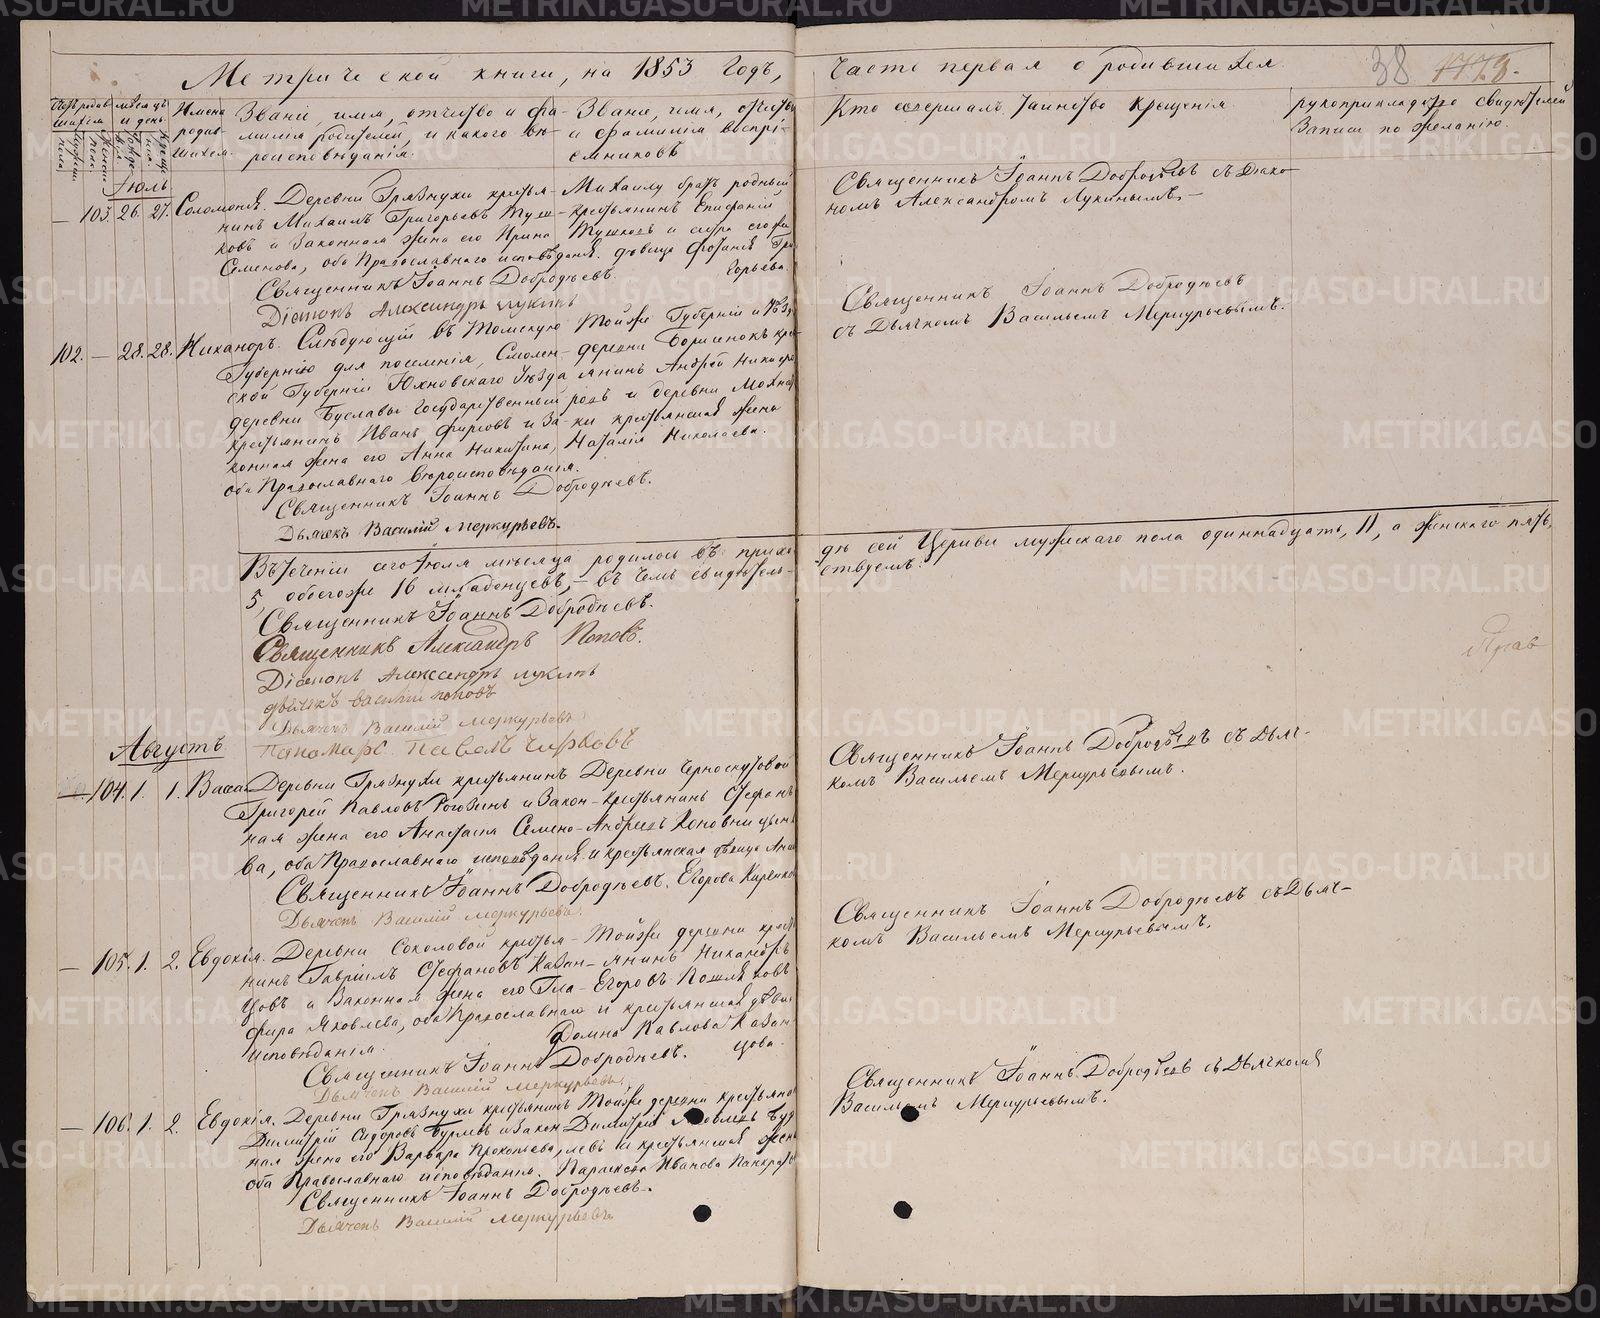 Метрической книги, на 1853 годъ,
часть первая о родившихся.
38
Имена родив-шихся.
Званіе, имя, отчество и фа-
милія родителей, и какого вѣ-
роисповѣданія.
Званіе, имя, отчество
и фамилія воспрі-
емниковъ
Кто совершалъ таинство крещенія.
рукоприкладство свидѣтелей
записи по желанію.
Іюль
103. 26. 27. Соломонія.
Деревни Грязнухи кресть-
янинъ Михаилъ Григорьевъ Туш-
ковъ и законная жена его Ирина
Семенова, оба Православнаго исповѣданія.
Священникъ Іоаннъ Добродѣевъ.
Діаконъ Александръ Лукинъ
Михаилу братъ родный
крестьянинъ Епифаній
Тушковъ и сестра его же
дѣвица Фотинія Гри-
горьева.
Священникъ Іоаннъ Добродѣевъ съ Діако-
номъ Александромъ Лукинымъ.
102. 28. 28. Никаноръ.
Слѣдующій въ Томскую
Губернію для поселенія, Смолен-
ской Губерніи Юхновскаго Уѣзда
деревни Буславы Государственный
крестьянинъ Иванъ Фирсовъ и за-
конная жена его Анна Никитина,
оба Православнаго вѣроисповѣданія.
Священникъ Іоаннъ Добродѣевъ.
Дьячекъ Василій Меркурьевъ.
Той же Губерніи и Уѣзда
деревни
Андрей
и деревни
крестьянская жена
Наталія Николаева.
Священникъ Іоаннъ Добродѣевъ
съ Дьячкомъ Васильемъ Меркурьевымъ.
Въ теченіи сего Іюля мѣсяца родилось въ прихо-
дѣ сей Церкви мужескаго пола одиннадцать, 11, а женскаго пять,
5, обоего же 16 младенцевъ, въ чемъ свидѣтель-
ствуемъ:
Священникъ Іоаннъ Добродѣевъ.
Священникъ Александръ Поповъ.
Діаконъ Александръ Лукинъ
дьячекъ Василій Поповъ
Дьячекъ Василій Меркурьевъ
Пономарь Павелъ Чирковъ
Августъ
104. 1. 1. Васса.
Деревни Грязнухи крестьянинъ
Григорій Павловъ Рогозинъ и закон-
ная жена его Анастасія Семено-
ва, оба Православнаго исповѣданія.
Священникъ Іоаннъ Добродѣевъ.
Дьячекъ Василій Меркурьевъ.
Деревни Черноскутовой
крестьянинъ Стефанъ
Андреевъ Коновницынъ
и крестьянская дѣвица
Егорова
Священникъ Іоаннъ Добродѣевъ съ Дьяч-
комъ Васильемъ Меркурьевымъ.
105. 1. 2. Евдокія.
Деревни Соколовой кресть-
янинъ Гавріилъ Стефановъ Казан-
цовъ и законная жена его Гла-
фира Яковлева, оба Православнаго
исповѣданія.
Священникъ Іоаннъ Добродѣевъ.
Дьячекъ Василій Меркурьевъ.
Той же деревни крест-
янинъ Никаноръ
Егоровъ
и крестьянская дѣвица
Домна Павлова Казан-
цова.
Священникъ Іоаннъ Добродѣевъ съ Дьяч-
комъ Васильемъ Меркурьевымъ.
106. 1. 2. Евдокія.
Деревни Грязнухи крестьянинъ
Димитрій Сидоровъ Бурлевъ и закон-
ная жена его Варвара Прокопьева,
оба Православнаго исповѣданія.
Священникъ Іоаннъ Добродѣевъ.
Дьячекъ Василій Меркурьевъ
Той же деревни крестьянинъ
Димитрій Яковлевъ
и крестьянская жена
Параскева Иванова
Священникъ Іоаннъ Добродѣевъ съ Дьячкомъ
Васильемъ Меркурьевымъ.
METRIKI.GASO-URAL.RU